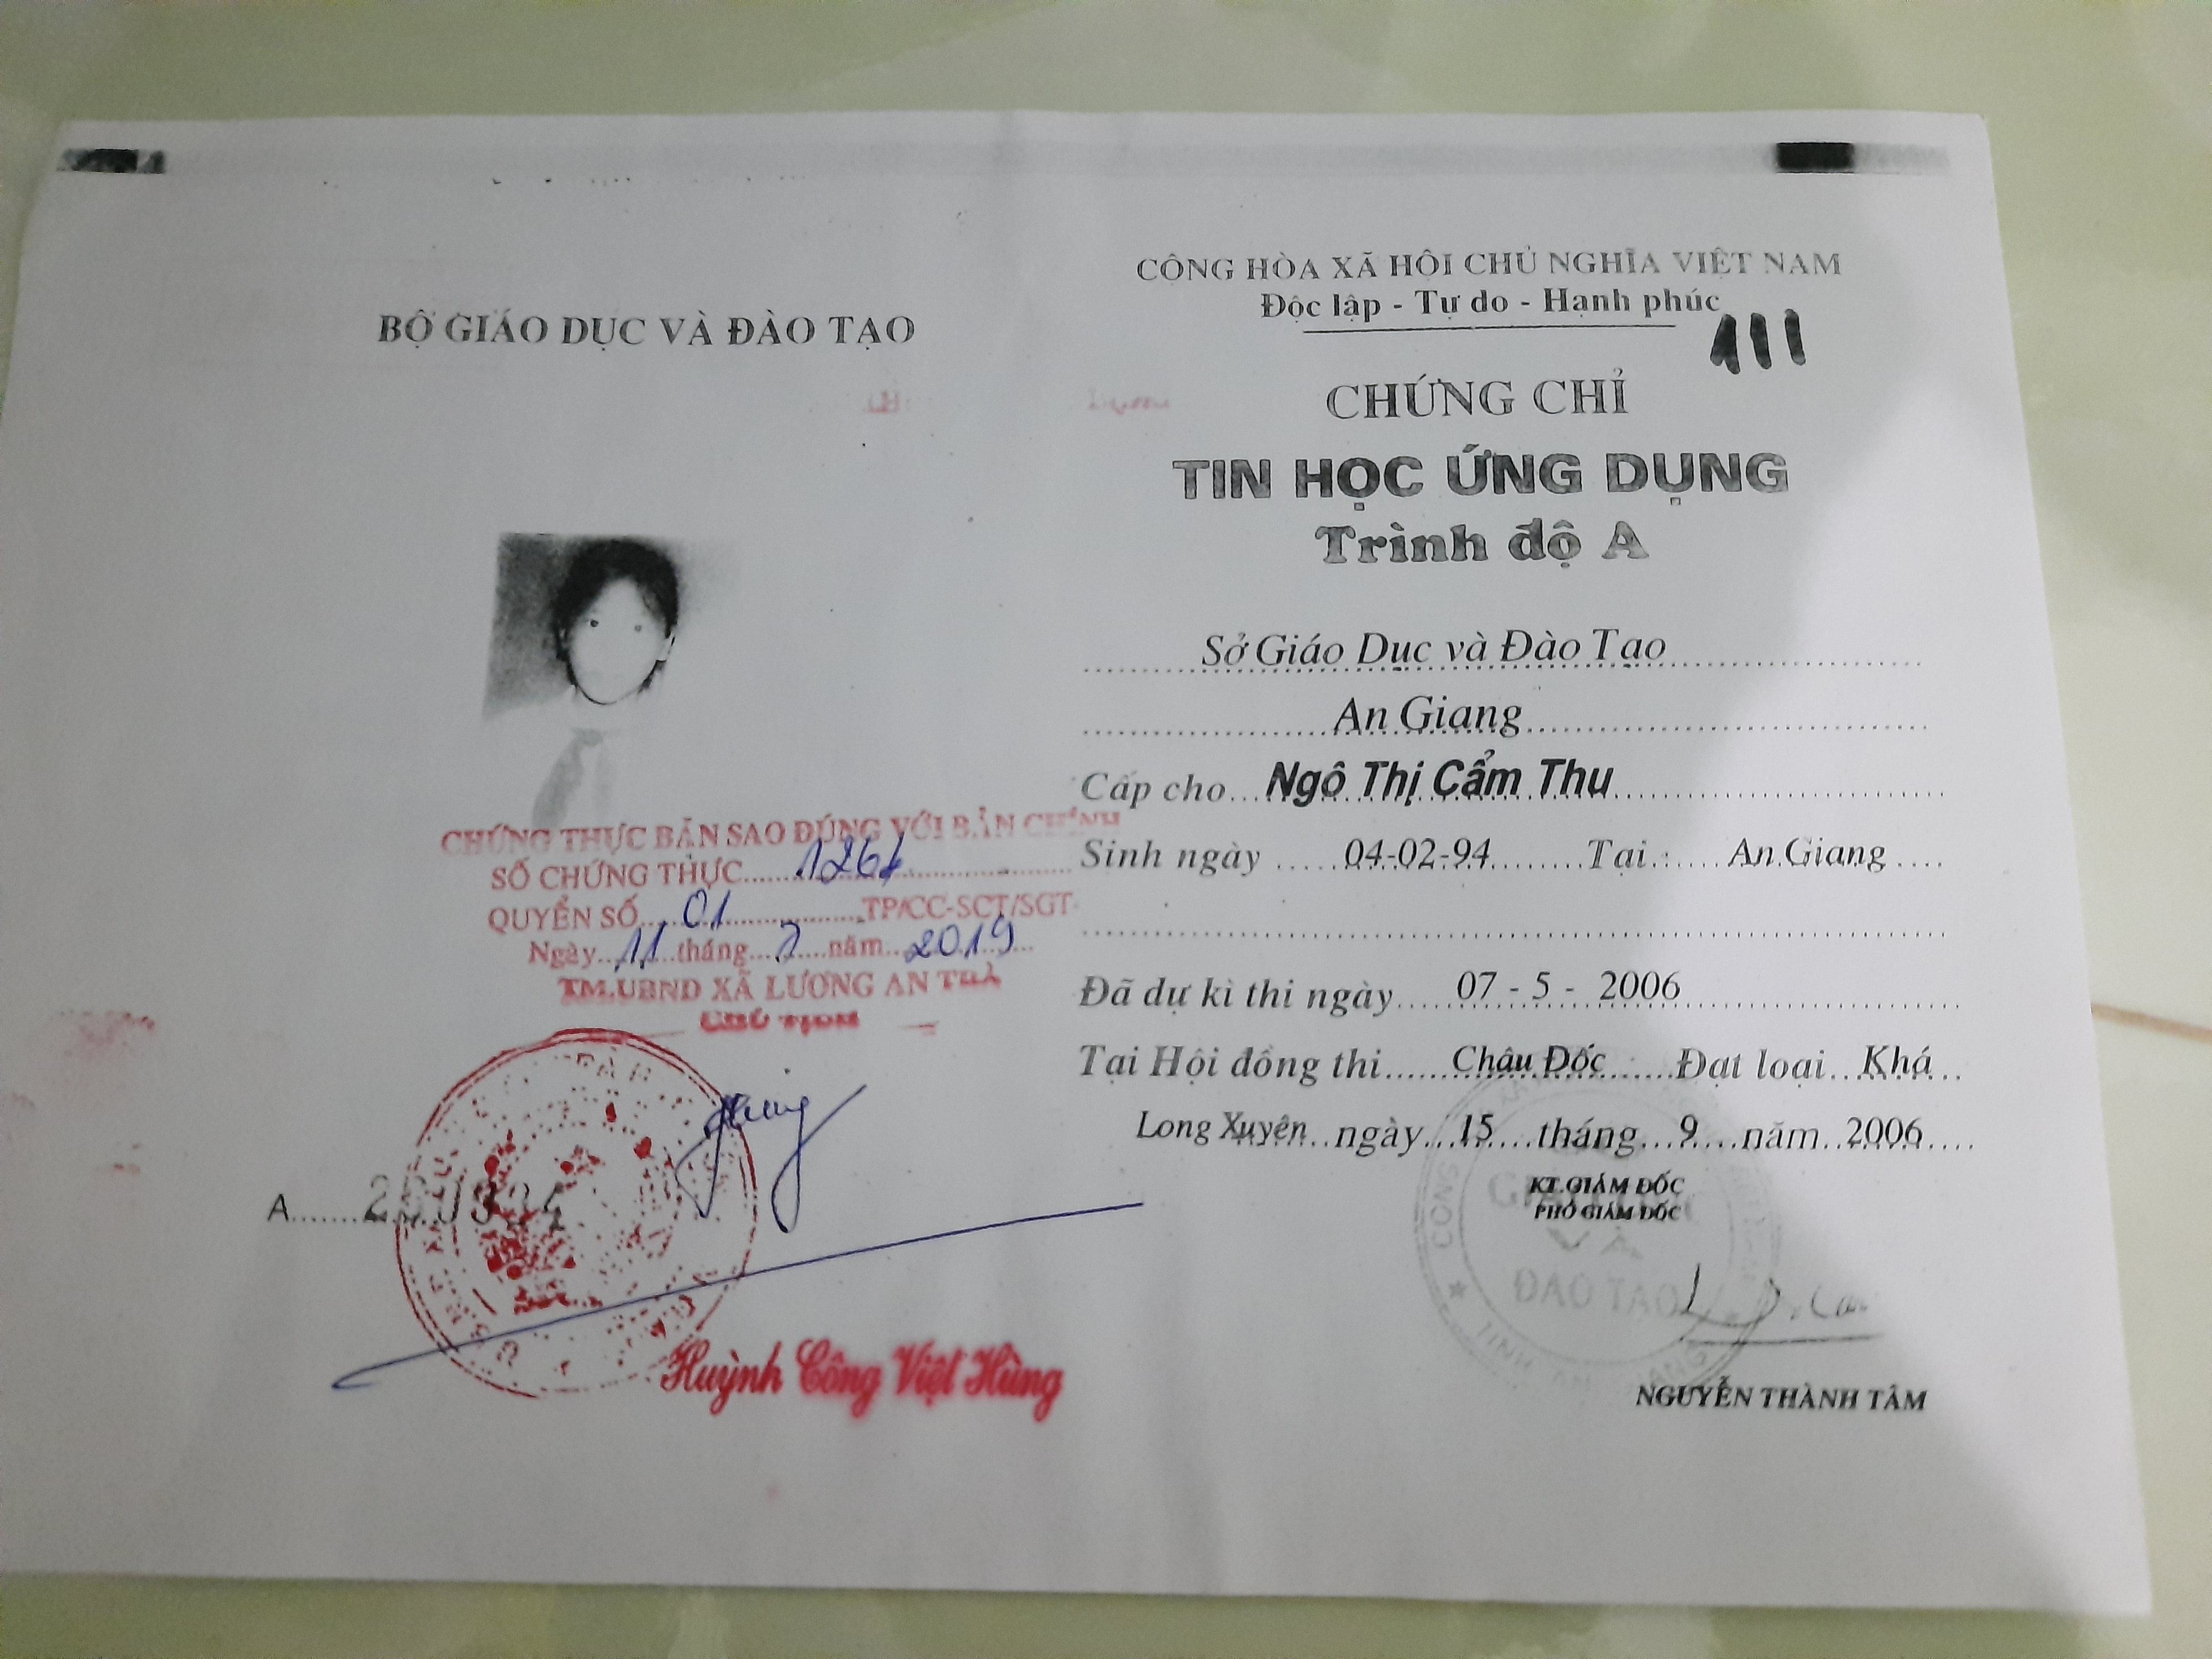 BỘ GIÁO DỤC VÀ ĐÀO TẠO
CHỨNG THỰC BẢN SAO ĐÚNG VỚI BẢN CHÍNH
SỐ CHỨNG THỰC
QUYỂN SỐ 01 TP/CC-SCT/SGT
Ngày 11 tháng 7 năm 2019
TM.UBND XÃ LƯƠNG AN TRÀ
CHỦ TỊCH
A
Huỳnh Công Việt Hùng
CỘNG HÒA XÃ HỘI CHỦ NGHĨA VIỆT NAM
Độc lập - Tự do - Hạnh phúc
111
CHỨNG CHỈ
TIN HỌC ỨNG DỤNG
Trình độ A
Sở Giáo Dục và Đào Tạo
An Giang
Cấp cho Ngô Thị Cẩm Thu
Sinh ngày 04-02-94 Tại: An Giang
Đã dự kì thi ngày 07 - 5 - 2006
Tại Hội đồng thi Châu Đốc Đạt loại Khá
Long Xuyên ngày 15 tháng 9 năm 2006
KT.GIÁM ĐỐC
PHÓ GIÁM ĐỐC
GIÁO DỤC
VÀ
ĐÀO TẠO
TỈNH AN GIANG
NGUYỄN THÀNH TÂM